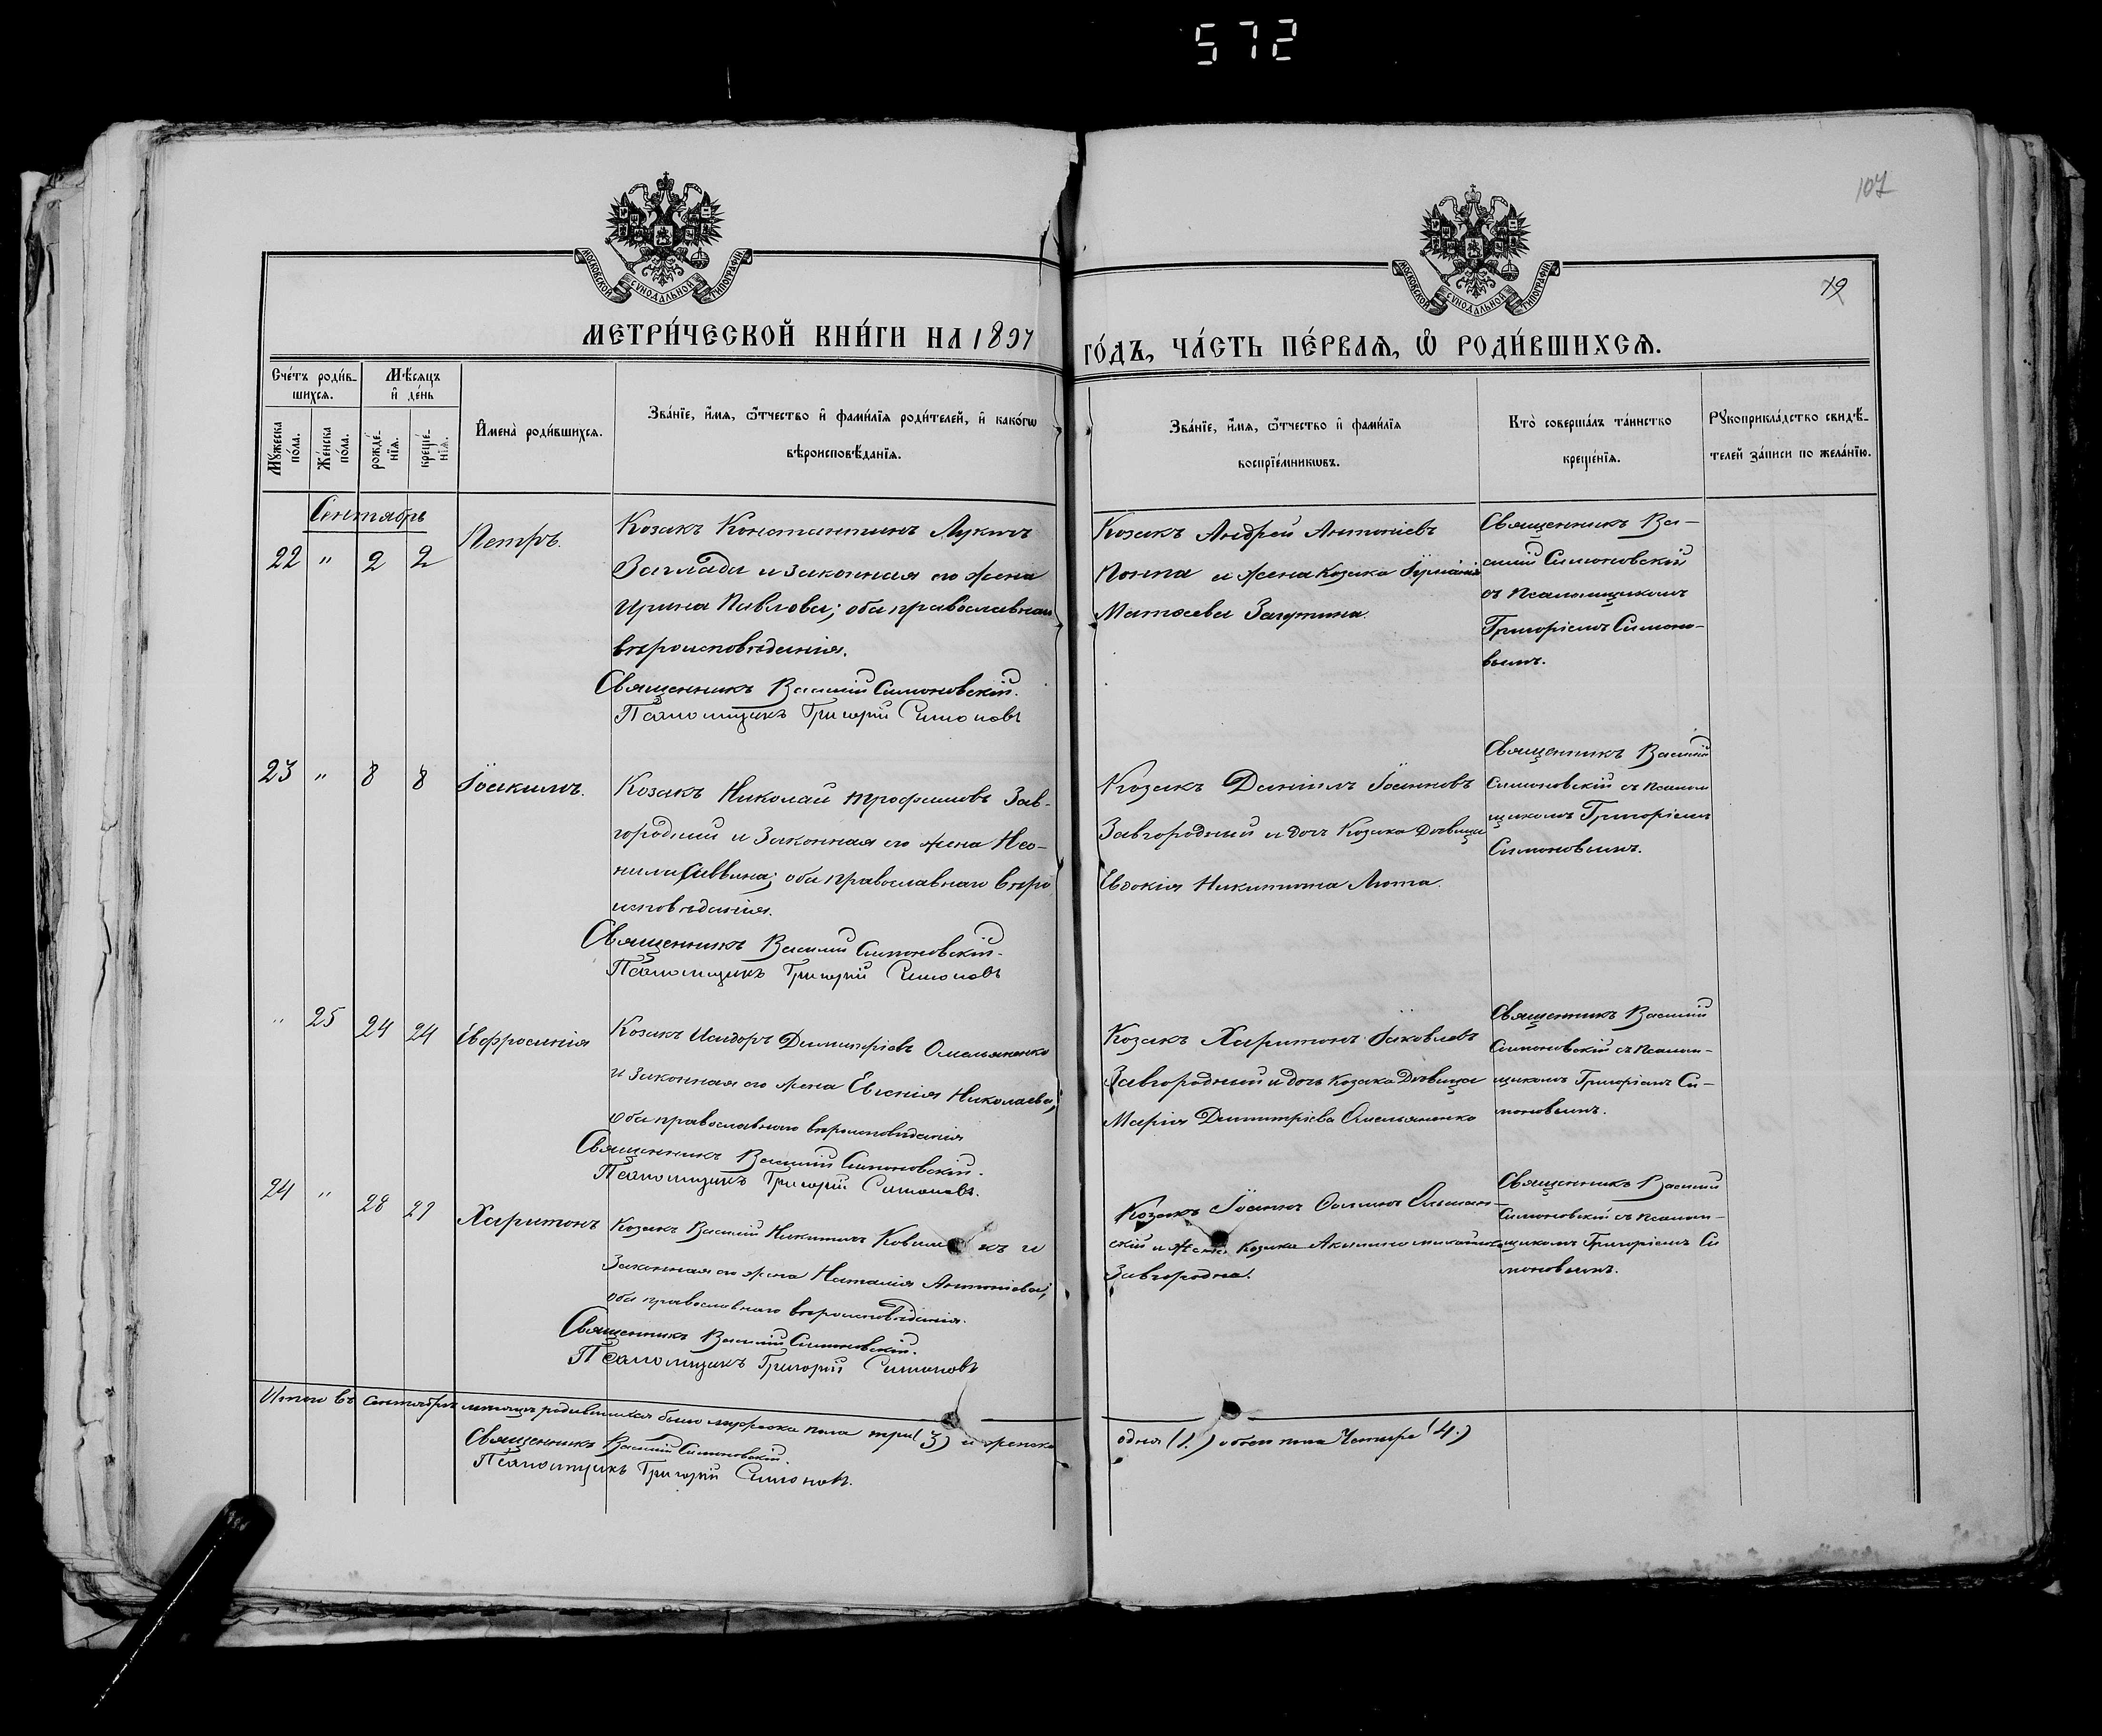 572
107
МОСКОВСКОЙ СУНОДАЛЬНОЙ ТИПОГРАФІИ
МОСКОВСКОЙ СУНОДАЛЬНОЙ ТИПОГРАФІИ
19
МЕТРИ́ЧЕСКОЙ КНИ́ГИ НА 1897
ГО́ДЪ, ЧА́СТЬ ПЕ́РВАѦ, Ѡ҆ РОДИ́ВШИХСѦ.
Сче́тъ роди́в-
шихсѧ.
Мѣ́сѧцъ
и҆ де́нь
Му́жеска по́ла.
Же́нска по́ла.
рожде́-
нїѧ.
креще́-
нїѧ.
И҆мена̀ роди́вшихсѧ.
Зва́нїе, и҆́мѧ, ѻ҆́тчество и҆ фами́лїѧ роди́телей, и҆ како́гѡ
вѣроисповѣ́данїѧ.
Зва́нїе, и҆́мѧ, ѻ҆́тчество и҆ фами́лїѧ
воспрїе́мникѡвъ.
Кто̀ соверша́лъ та́инство
креще́нїѧ.
Рукоприкла́дство свидѣ́-
телей за́писи по жела́нїю.
Сентябрь
22 " 2 2
Петръ.
Козакъ Константинъ Лукинъ
Заглада и законная его жена
Ирина Павлова; оба православнаго
вѣроисповѣданія.
Священникъ Василій Симоновскій.
Псаломщикъ Григорій Симоновъ
Козакъ Андрей Антоніевъ
Попка и жена козака
Матѳеева
Священникъ Ва-
силій Симоновскій
съ псаломщикомъ
Григоріемъ Симоно-
вымъ.
23 " 8 8
Іоакимъ.
Козакъ Николай Трофимовъ Зав-
городний и законная его жена Нео-
нила Саввина; оба православнаго вѣро
исповѣданія.
Священникъ Василій Симоновскій.
Псаломщикъ Григорій Симоновъ
Козакъ Даніилъ Іоанновъ
Завгородный и дочь козака дѣвица
Евдокія Никитина Люта.
Священникъ Василій
Симоновскій съ псалом
щикомъ Григоріемъ
Симоновымъ.
" 25 24 24
Евфросинія
Козакъ Исидоръ Димитріевъ Омельяненко
и законная его жена Евгенія Николаева;
оба православнаго вѣроисповѣданія
Священникъ Василій Симоновскій.
Псаломщикъ Григорій Симоновъ.
Козакъ Харитонъ Іаковлевъ
Завгородный и дочь козака дѣвица
Марія Димитріева Омельяненко
Священникъ Василій
Симоновскій съ псалом-
щикомъ Григоріемъ Си-
моновымъ.
24 " 28 29
Харитонъ
Козакъ Василій Никитинъ и
законная его жена Наталія Антоніева;
оба православнаго вѣроисповѣданія.
Священникъ Василій Симоновскій.
Псаломщикъ Григорій Симоновъ
Козакъ Іоаннъ
скій и жена козака Акилина
Завгородна.
Священникъ Василій
Симоновскій съ псалом-
щикомъ Григоріемъ Си
моновымъ.
Итого въ Сентябрѣ мѣсяцѣ родившихся было мужеска пола три (3) и женска
одна (1.) обоего пола Четыре (4.)
Священникъ Василій Симоновскій.
Псаломщикъ Григорій Симоновъ.